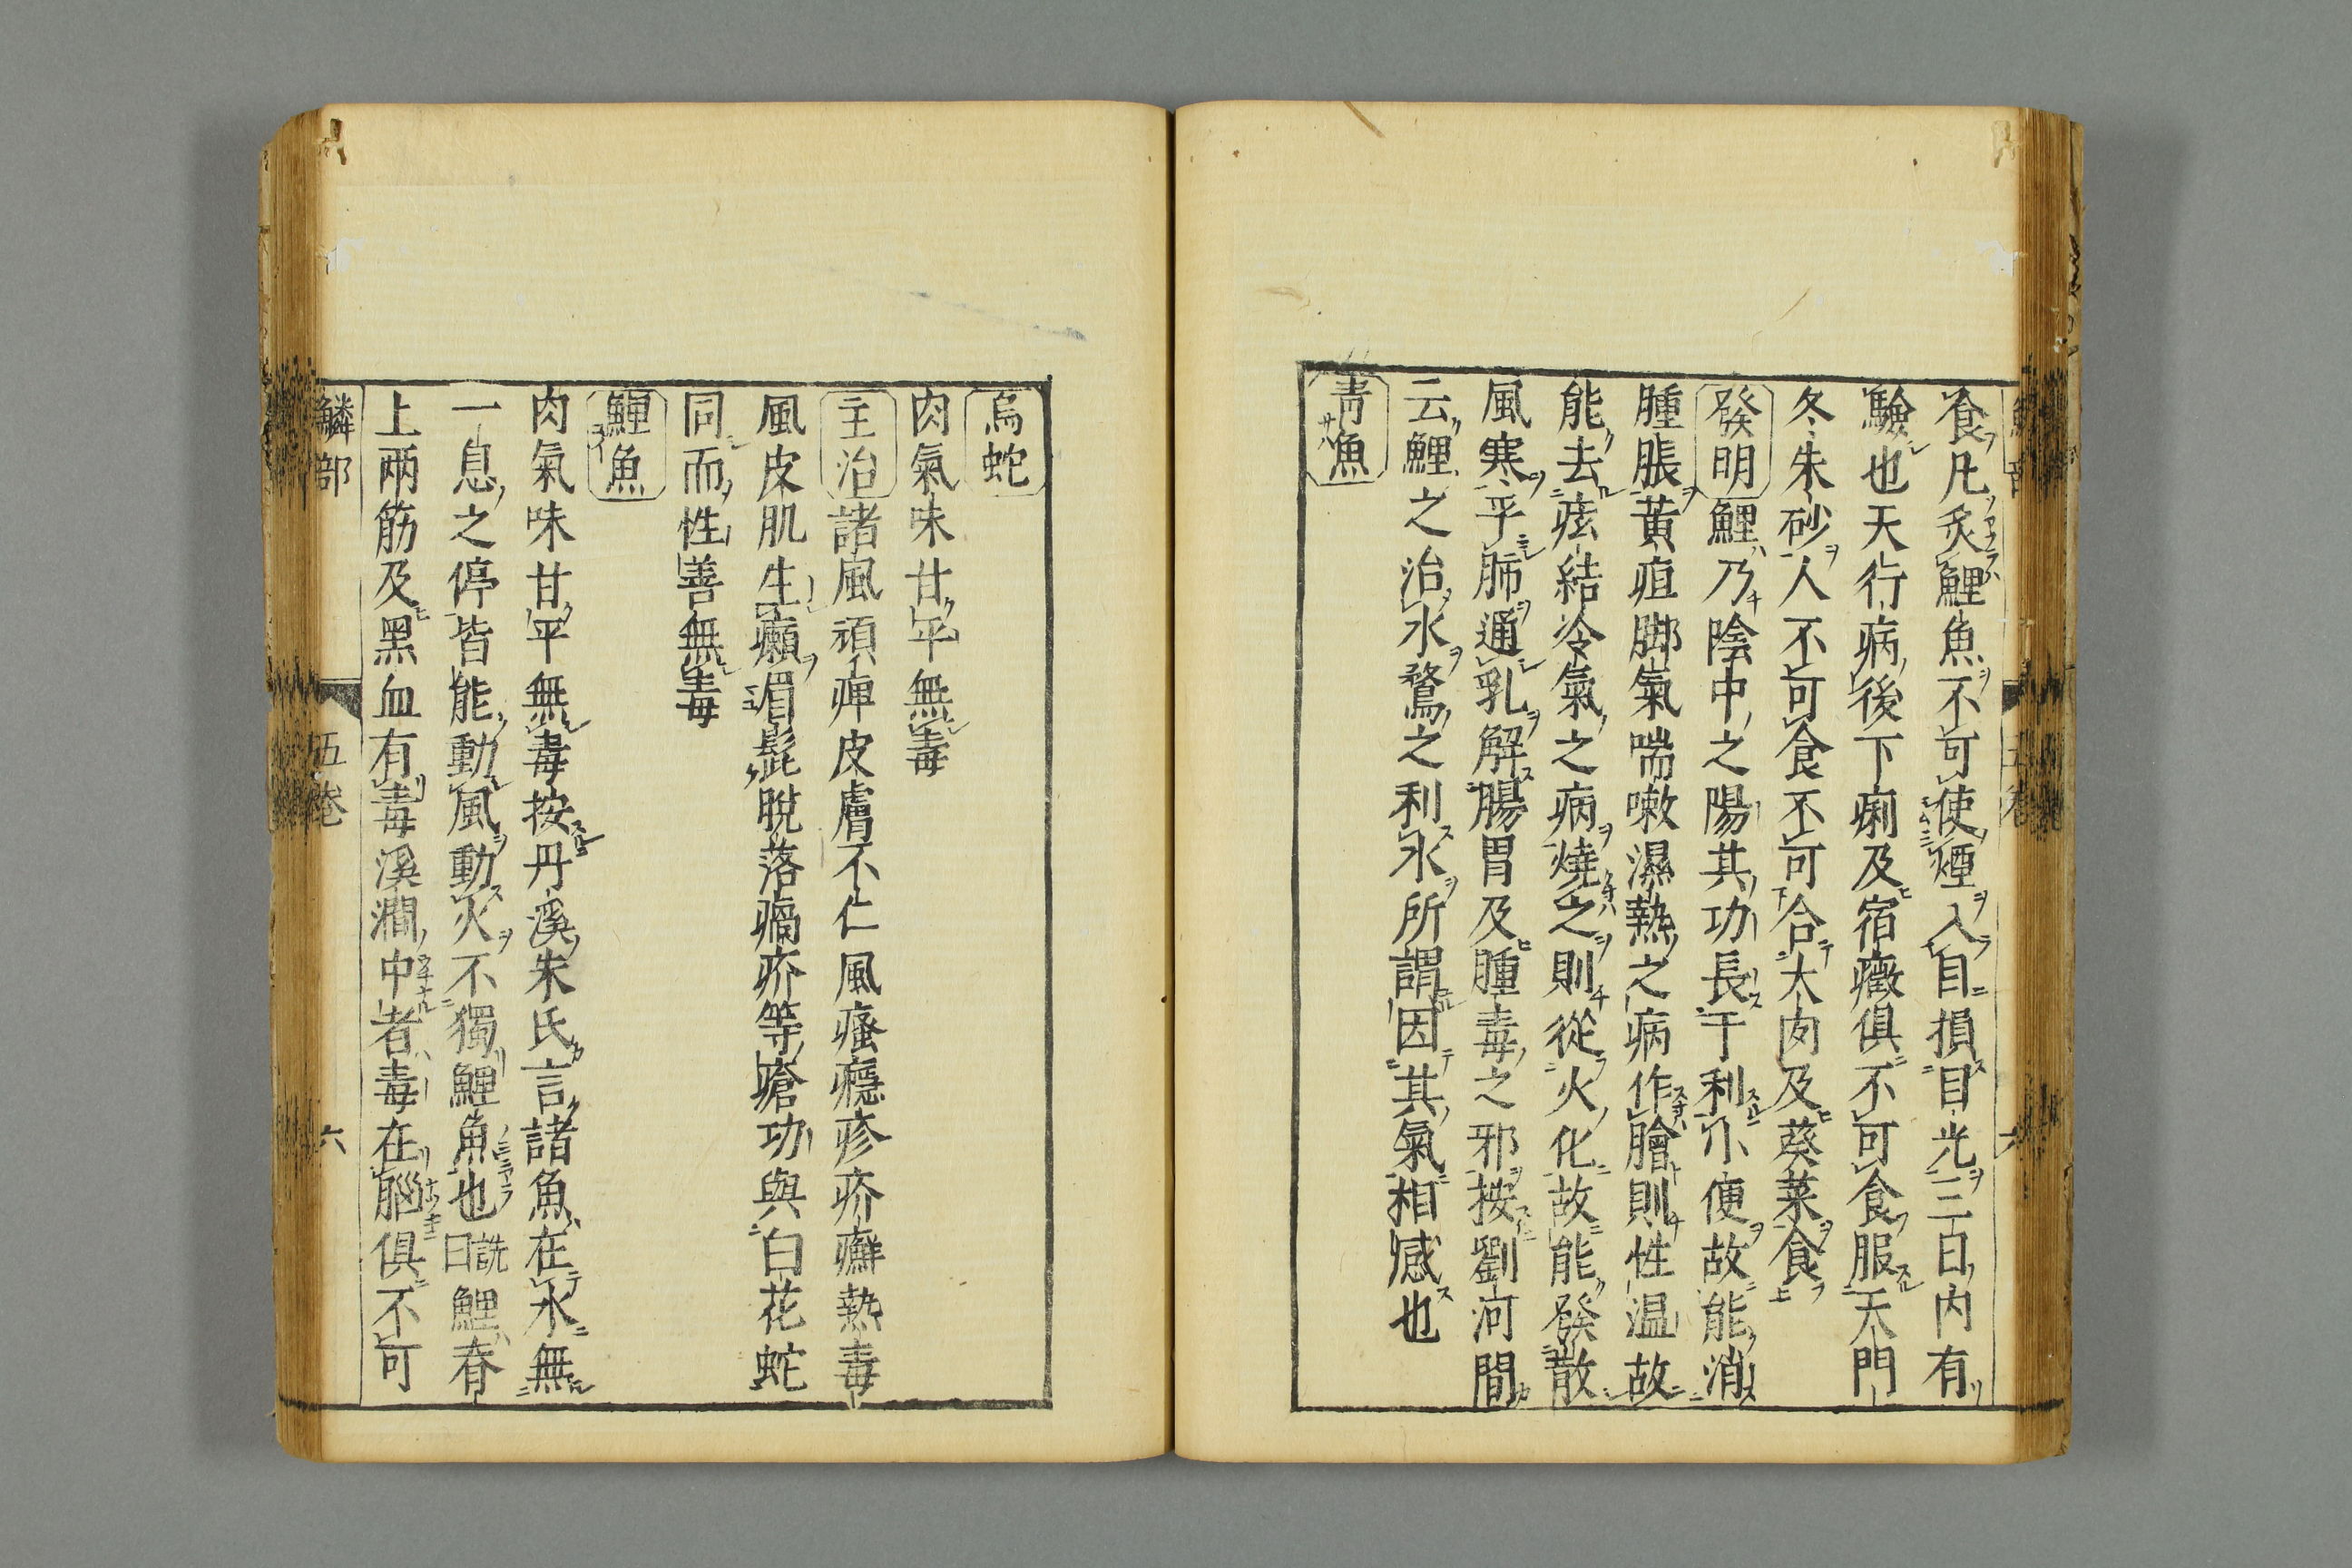 食凡炙鯉魚不可使煙入目損目光三日內有
驗也天行病後下痢及宿癥俱不可食服天門
冬朱砂人不可食不可合犬肉及葵菜食
發明鯉乃陰中之陽其功長于利小便故能消
腫脹黃疸脚氣喘嗽濕熱之病作膾則性温故
能去痃結冷氣之病燒之則從火化故能發散
風寒平肺通乳解腸胃及腫毒之邪按劉河間
云鯉之治水鶩之利水所謂因其氣相感也
青魚
烏蛇
肉氣味甘平無毒
主治諸風頑痺皮膚不仁風瘙癮疹疥癬熱毒
風皮肌生癩眉髭脫落㾧疥等瘡功與白花蛇
同而性善無毒
鯉魚
肉氣味甘平無毒按丹溪朱氏言諸魚在水無
一息之停皆能動風動火不獨鯉魚也詵曰鯉脊
上兩筋及黑血有毒溪澗中者毒在腦俱不可
鱗部 五卷 六